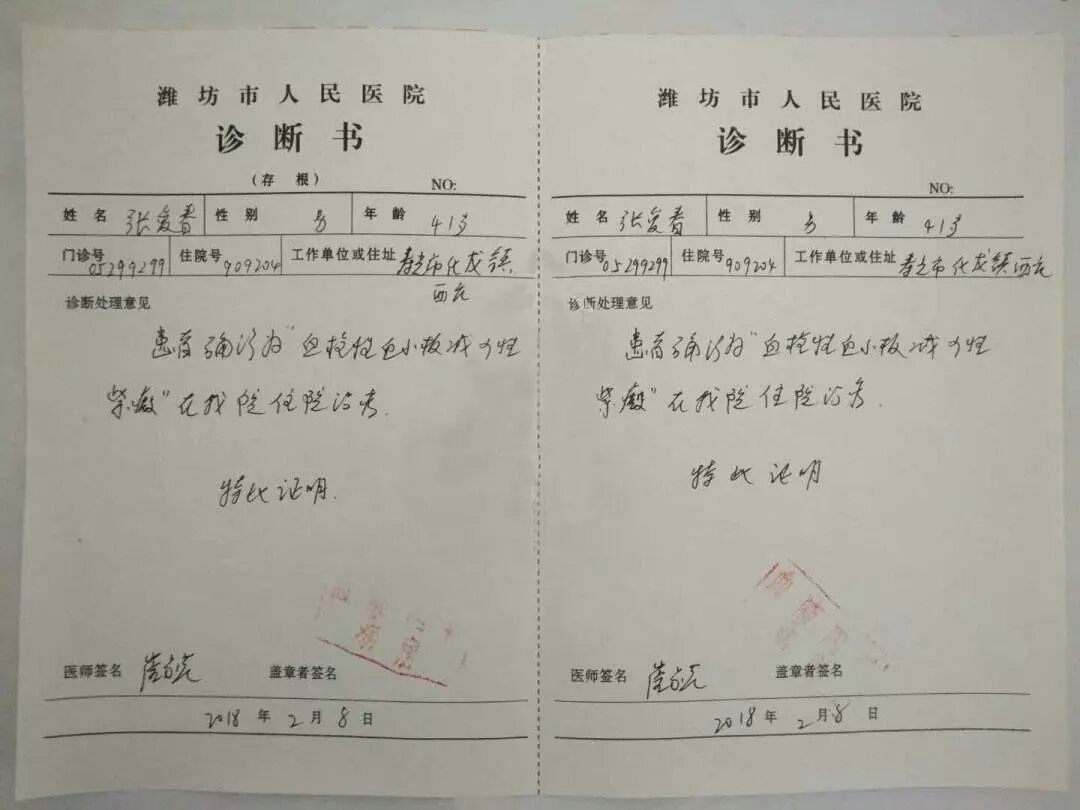 潍坊市人民医院
诊断书
(存根)
NO:
姓名 张爱春 性别 男 年龄 41岁
门诊号 05299299 住院号 909204 工作单位或住址 寿光市化龙镇
西
诊断处理意见
患者确诊为"血栓性血小板减少性
紫癜"在我院住院治疗.
特此证明.
医师签名 盖章者签名
2018年2月8日
潍坊市人民医院
诊断书
NO:
姓名 张爱春 性别 男 年龄 41岁
门诊号 05299299 住院号 909204 工作单位或住址 寿光市化龙镇西
诊断处理意见
患者确诊为"血栓性血小板减少性
紫癜"在我院住院治疗.
特此证明
医师签名 盖章者签名
2018年2月8日